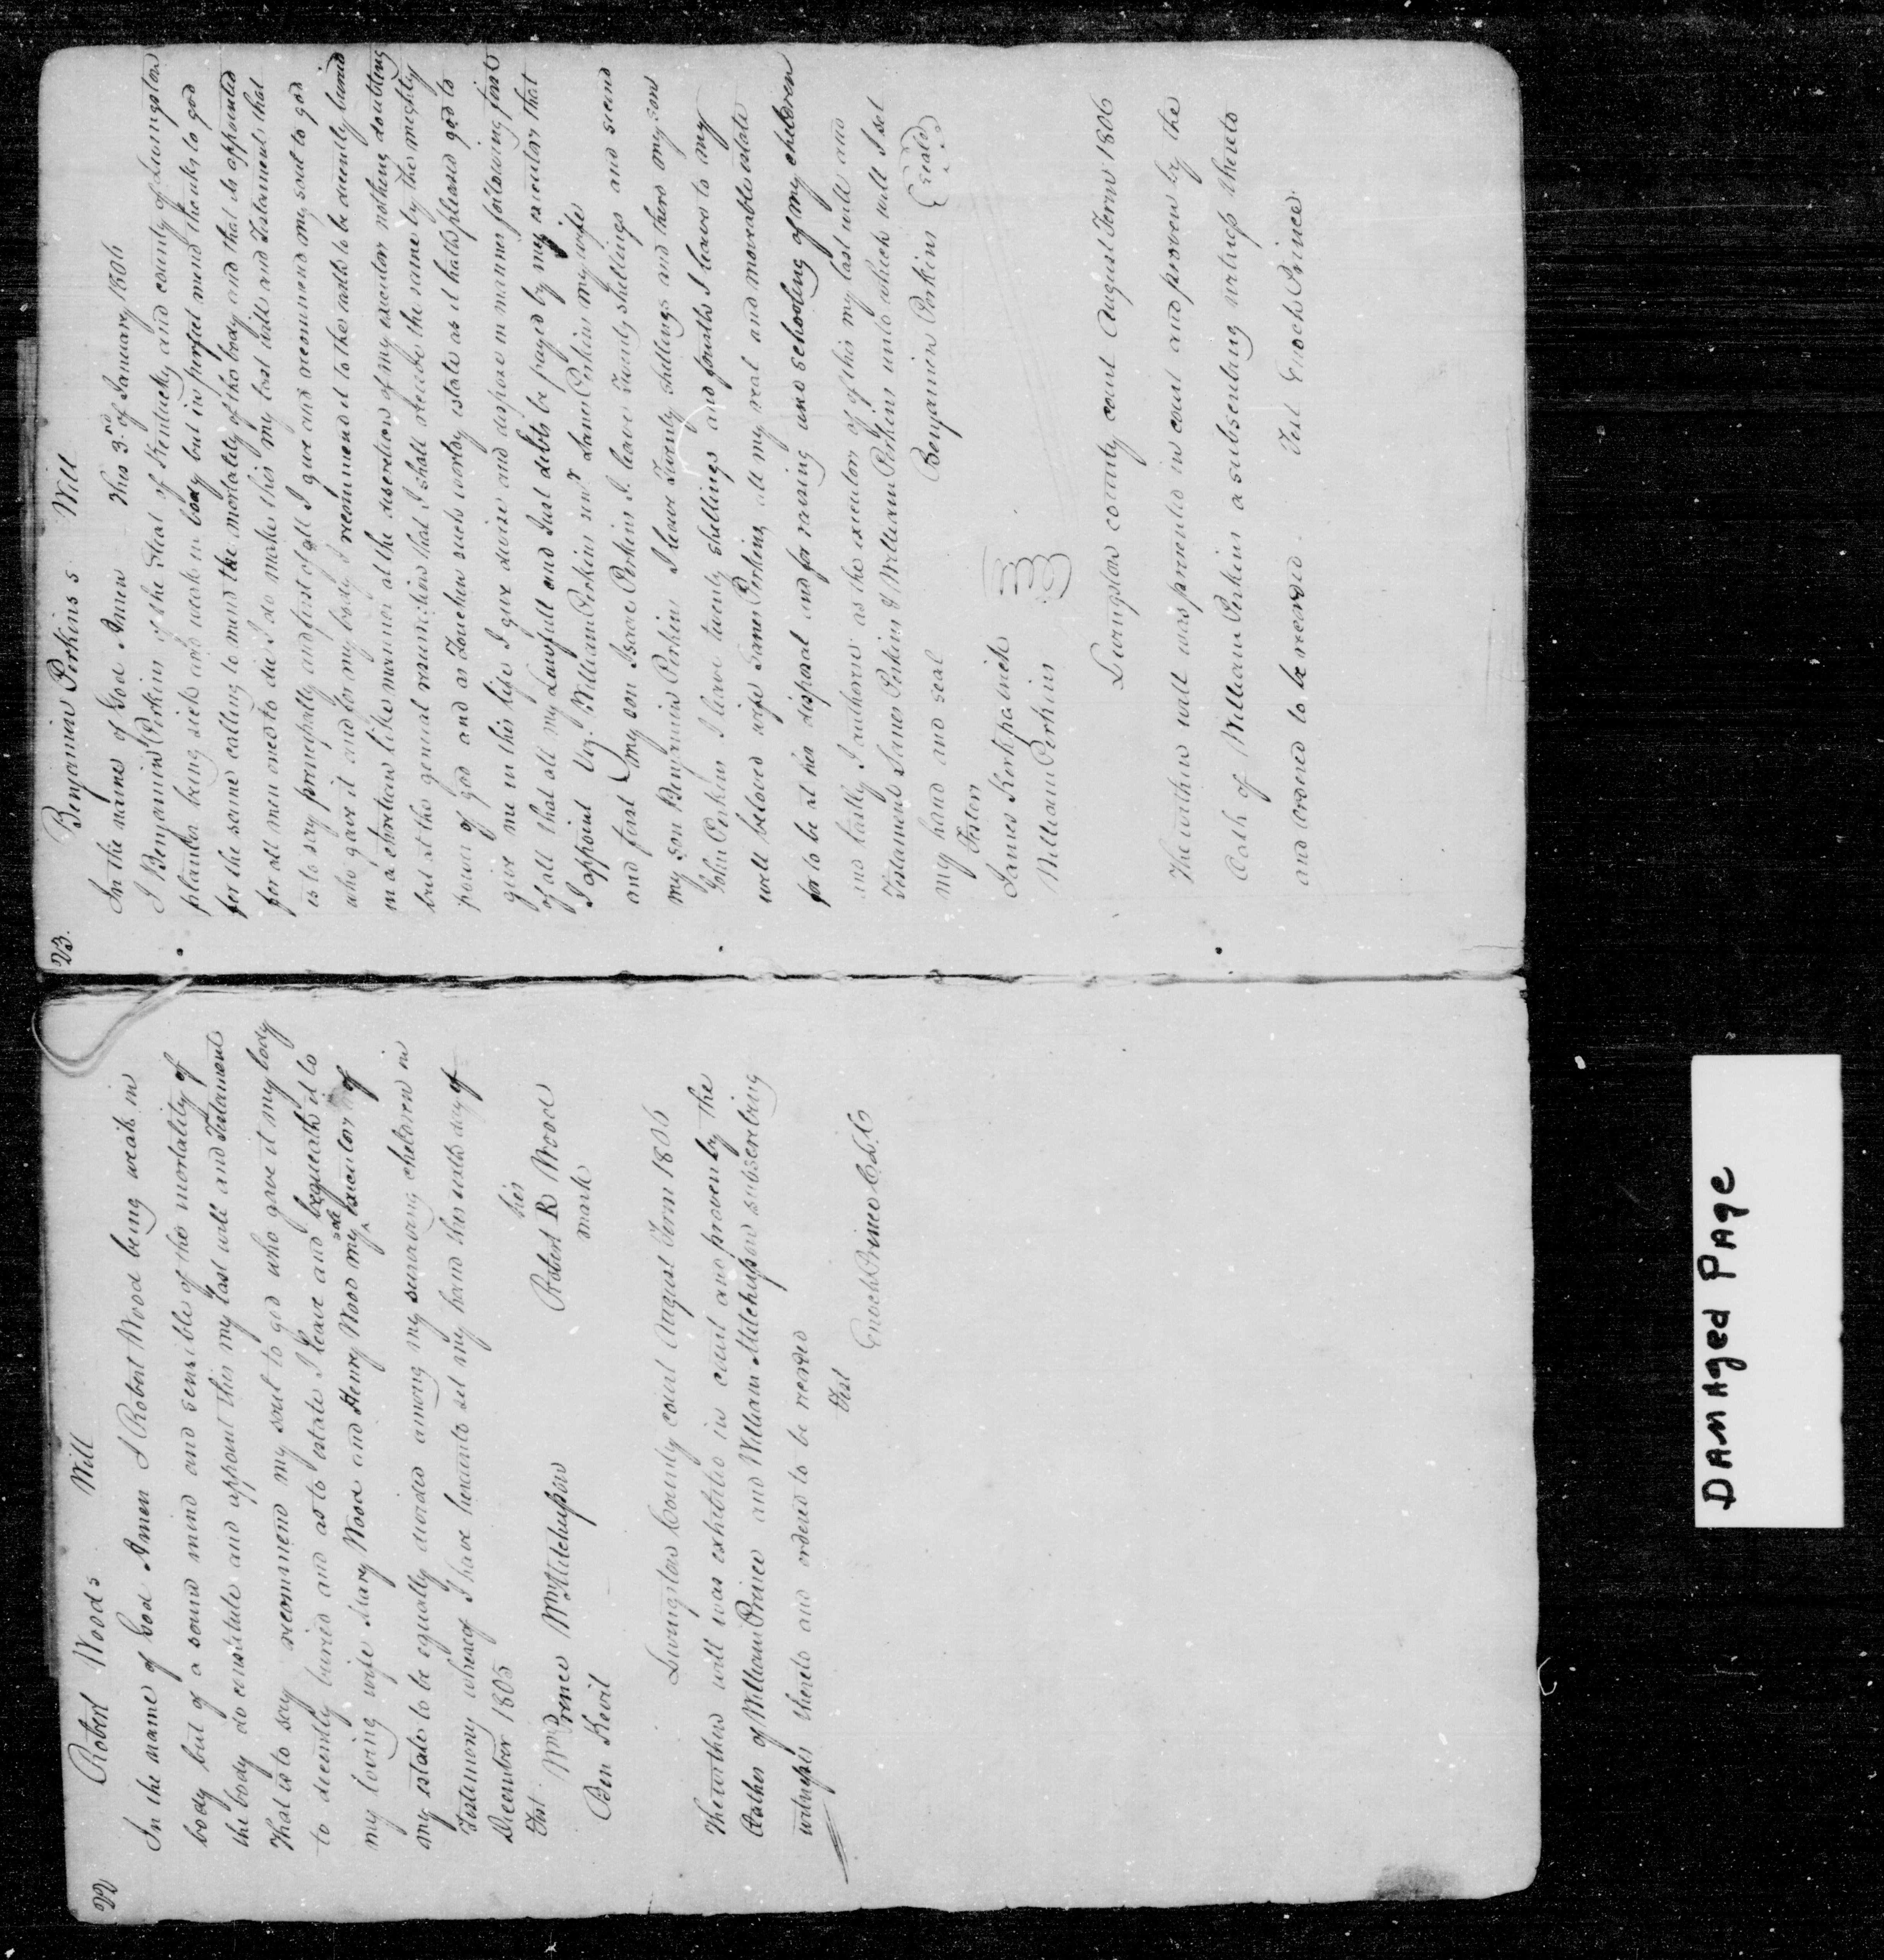 22
Robert Woods Will
In the name of God Amen I Robert Wood being weak in
body but of a sound mind and sensible of the mortality of
the body do constitute and appoint this my last will and Testament
That is to say recommend my soul to god who gave it my body
to decently buried and as to estate I leave and bequeath it to
my loving wife Mary Wood and Henry Wood my sole executor of
my estate to be equally divided among my surviving children in
Testimony whereof I have hereunto set my hand this day of
December 1805
his
Test Robert R Wood
Wm Prince Wm Mitchusson mark
Ben Kevil
Livingston County court August Term 1806
The within will was exhibited in court and proven by the
Oathes of William Prince and William Mitchusson subscribing
witnesses thereto and ordered to be recorded
Test
Enoch Prince C L C
23.
Benjamin Perkins s Will
In the name of God Amen This 3rd of January 1806
I Benjamin Perkins of the Steat of Kentucky and county of Livingston
planter being sick and weak in body but in perfect mind thanks to god
for the same calling to mind the mortality of the body and that is appointed
for all men once to die I do make this my last will and Testament that
is to say principally and first of all I give and recommend my soul to god
who gave it and for my body I recommend it to the earth to be decently buried
in a christian like manner at the discretion of my executor nothing doubting
but at the general resurrection that I shall receibe the same by the mighty
power of god and as Touchen such wordy estate as it hath pleased god to
give me in this life I give devise and dispose in manner following first
of all that all my Lawfull and Just debts be payed by my executor that
I appoint viz. William Perkins and James Perkins my wife
and first my son Isaac Perkins I leave Twenty shillings and second
my son Benjamin Perkins I leave Twenty shillings and third my son
John Perkins I leave twenty shillings and fourth I leave to my
well beloved wife James Perkins all my real and moveable estate
for to be at her disposal and for raising and schooling of my children
and lastly I authorise as the executors of of this my last will and
Testament James Perkins & William Perkins unto which will I set
my hand and seal Benjamin Perkins (seal)
Testor
James Kirkpatrick
William Perkins
Livingston county court August Term 1806
The within will was presented in court and proven by the
Oath of William Perkins a subscribing witness thereto
and ordered to be recorded. Test Enoch Prince
Damaged Page